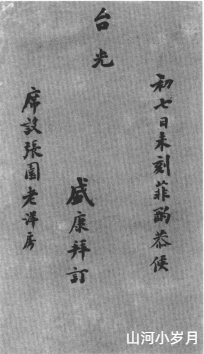 初七日未刻菲酌恭侯
台光
盛康拜訂
席設張園老洋房
山河小岁月